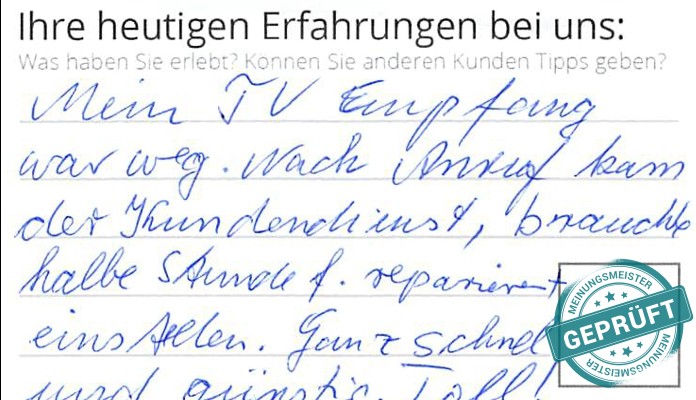 Ihre heutigen Erfahrungen bei uns:
Was haben Sie erlebt? Können Sie anderen Kunden Tipps geben?
Mein TV Empfang
war weg. Nach Anruf kam
der Kundendienst, brauchte
halbe Stunde f. reparieren +
einstellen. Ganz schnell
und günstig. Toll!
MEINUNGSMEISTER
GEPRÜFT
MEINUNGSMEISTER